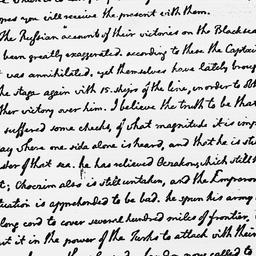 mes you will receive the present with them.
The Russian accounts of their victories on the Black sea
been greatly exaggerated. according to these the Captain
was annihilated. yet themselves have lately brought
the stage again with 15. ships of the line, in order to obt
other victory over him. I believe the truth to be that
suffered some checks, of what magnitude it is imp
say where one side alone is heard, and that he is still
ster of that sea. he has relieved Oczakow, which still h
t; Choczim also is still untaken, and the Emperor
situation is apprehended to be bad. he spun his army
long cord to cover several hundred miles of frontier,
put it in the power of the Turks to attack with their
called to